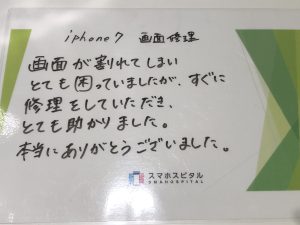 iphone7 画面修理
画面が割れてしまい
とても困っていましたが、すぐに
修理をしていただき、
とても助かりました。
本当にありがとうございました。
スマホスピタル
SMAHOSPITAL